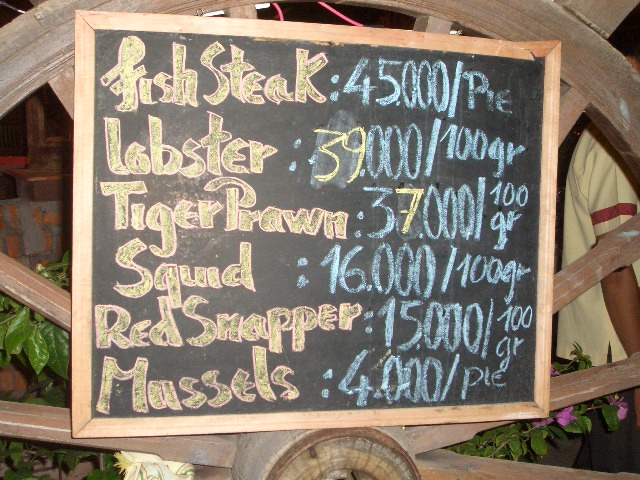 Fish Steak : 45.000/Pie
Lobster : 59.000/100gr
Tiger Prawn : 37.000/100 gr
Squid : 16.000/100gr
Red Snapper : 15.000/100 gr
Mussels : 4.000/Pie